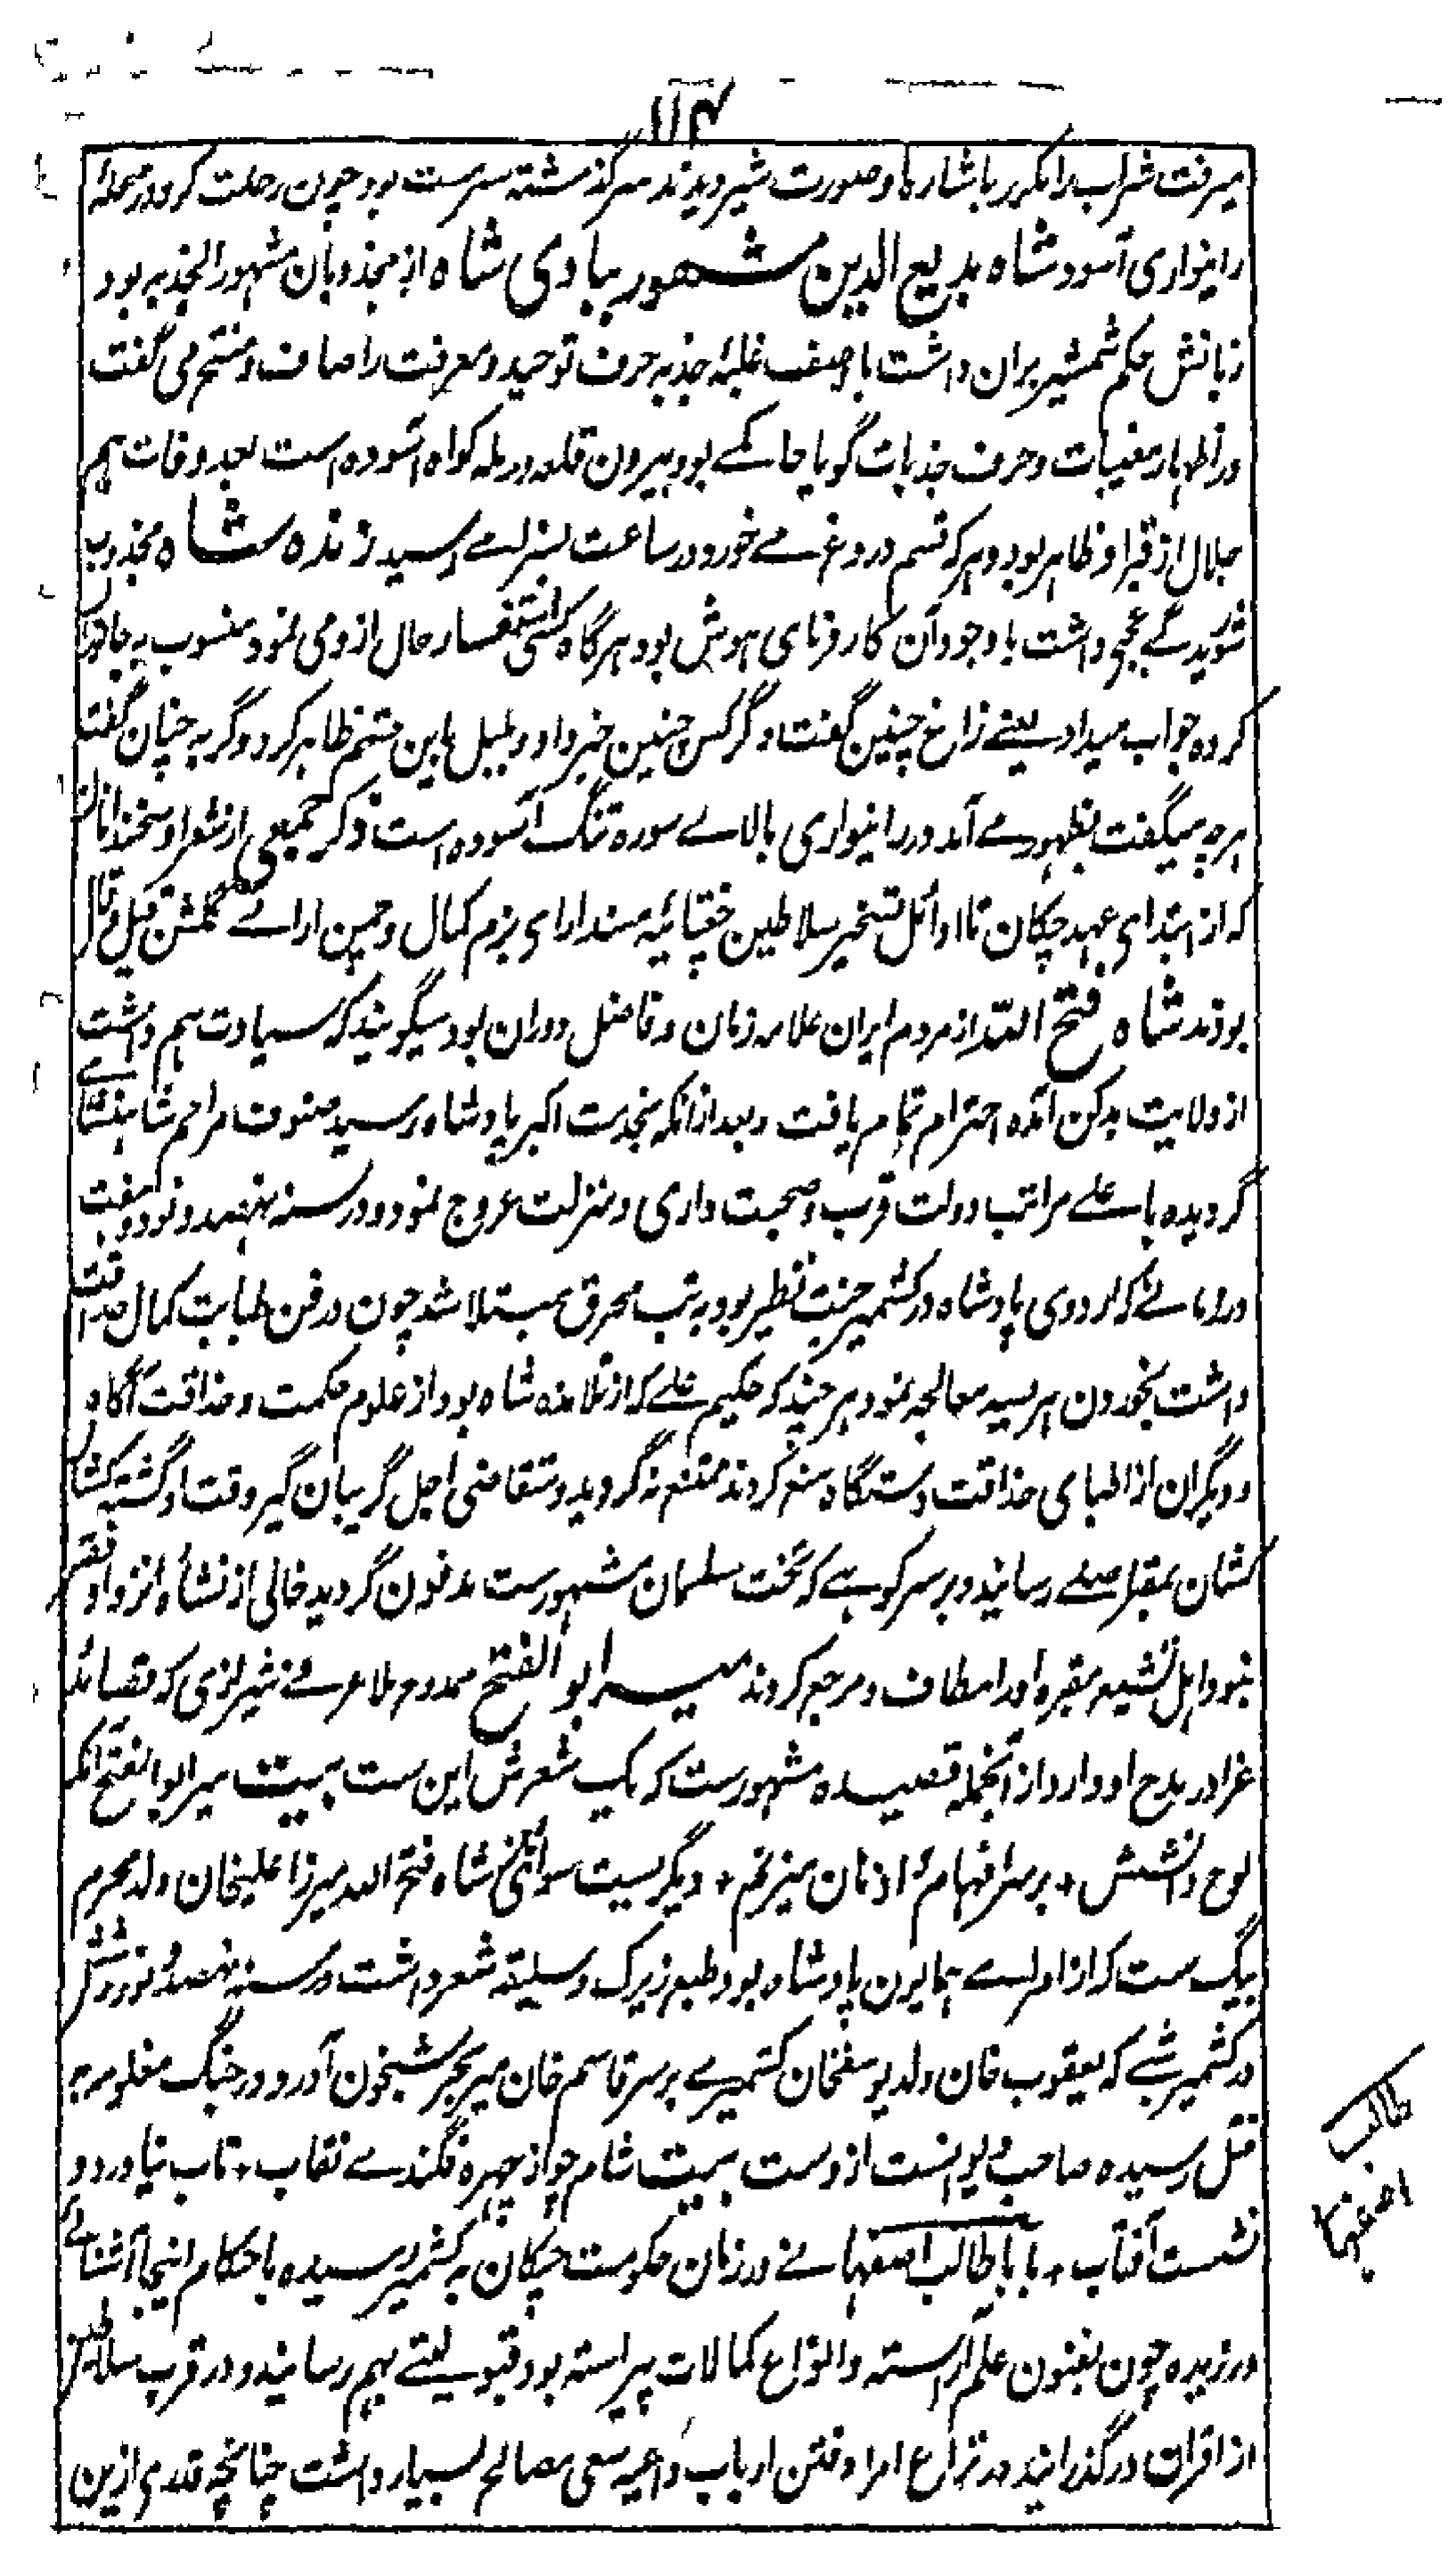 ۱۱۴
میرفت شراب را مکرر باشاره ما و صورت شیر دیدند سرگذشته سرست بود چون رحلت کرد در محله
رانیواری آسود شاه بدیع الدین مشهور بہادی شاه از مجذوبان مشهور الجذبه بود
زبانش حکم شمشیر بران داشت باوصف غلبهٔ جذبه حرف توحید و معرفت را صاف و منتح می گفت
در اظهار مغیبات و حرف جذبات گویا چاکے بود بیرون قلعه در مله کواه آسوده است بعد وفات هم
جلال از قبر او ظاهر بود و هر که قسم دروغ مے خورد در ساعت بسزاے رسید زنده شاه مجذوب
شوریدگے عجب داشت با وجود آن کارفرمای هوش بود هرگاه کسی استفسار حال از و می نمود منسوب به جانوران
کرده جواب میداد یعنے زاغ چنین گفت و گرکس چنین خبر داد و بلبل باین قسم ظاهر کرد و گربه چنان گفت
هر چه میگفت بظهور مے آمد در رانیواری بالاے سوره تنگ آسوده است ذکر جمیعی از شعرا و سخندانان
که از ابتدای عهد چکان تا اوائل تسخیر سلاطین چغتائیه مسند ارای بزم کمال و چمن اراے گلشن قیل و قال
بودند شاه فتح الله از مردم ایران علامه زمان و فاضل دوران بود میگویند که سیادت هم داشت
از ولایت بدکن آمده احترام تمام یافت و بعد ازانکه بخدمت اکبر پادشاه رسید صنوف مراحم شاهنشاهے
گردیده باعلے مراتب دولت قرب و صحبت داری و منزلت عروج نمود و در سنه نهصد و نود و هفت
در زمانے که اردوی پادشاه در کشمیر جنت نظیر بود به تب محرق مبتلا شد چون در فن طبابت کمال حذاقت
داشت بخوردن هریسه معالجه نمود هر چند که حکیم علے که از تلامذه شاه بود از علوم حکمت و حذاقت آگاه
و دیگران از اطبای حذاقت دستگاه منع کردند ممتنع نه گردید و متقاضی اجل گریبان گیر وقت او گشته کشان
کشان بمقر اصلے رسانید و بر سر کوهے که تخت سلمان مشهورست مدفون گردید خالی از نشاء انزوا و فقر
نبود اهل تشیعه مقبره او را مطاف و مرجع کردند میر ابو الفتح ممدوح ملا عرفے شیرازی که قصائد
غرا در مدح او دارد از آنجمله قصیده مشهورست که یک شعرش این ست بیت میر ابو الفتح آنکه
لوح دانشش + بر سر افهام و اذهان میزنم + دیگریست سوائی شاه فتح الله میرزا علیخان ولد محرم
بیگ ست که از امراے همایون پادشاه بود طبع زیرک و سلیقه شعر داشت در سنه نهصد و نود و شش
در کشمیر شبے که یعقوب خان ولد یوسفخان کشمیرے بر سر قاسم خان میر بحر شبخون آورد در جنگ مغلوبه به
قتل رسیده صاحب دیوانست از وست بیت شام چو از چهره فگندے نقاب + تاب نیاورد و
نشست آفتاب + بابا طالب اصفهانے در زمان حکومت چکان به کشمیر رسیده با حکام اینجا آشنائے
ورزیده چون بفنون علم آراسته و انواع کمالات پیراسته بود قبولیتے بهم رسانید و در قرب سلاطین
از اقران درگذرانید در نزاع امرا و فتن ارباب داعیه سعی مصالح بسیار داشت چنانچه قدری ازین
طالب
اصفهانی